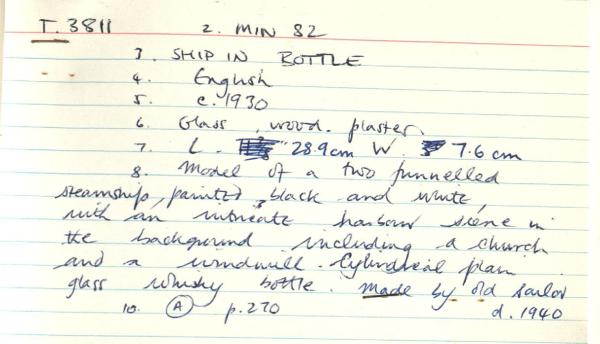 T. 3811 2. MIN 82
3. SHIP IN BOTTLE
4. English
5. c. 1930
6. Glass, wood. plaster.
7. L. 28.9cm W. 7.6 cm
8. Model of a two funnelled
steamship, painted, black and white,
with an intricate harbour scene in
the background including a church
and a windmill. Cylindrical plain
glass whisky bottle. Made by old sailor
10. A p.270 d. 1940